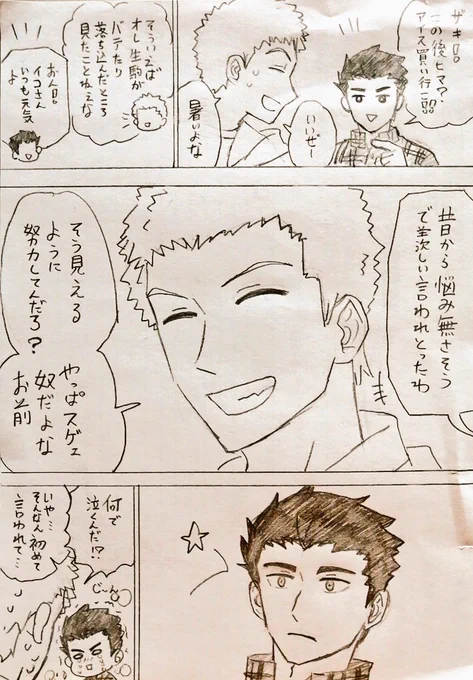 ザキ
この後ヒマ?
アイス買い行こ
いいぜー
暑いよな
そういえば
オレ生駒が
バテたり
落ち込んだところ
見たことねえな
イコさん
いつも元気
よ
昔から悩み無さそう
で羨しい言われとったわ
そう見える
ように
努力してんだろ?
やっぱスゲェ
奴だよな
お前
何で
泣くんだ!?
いや…
そんなん初めて
言われて…